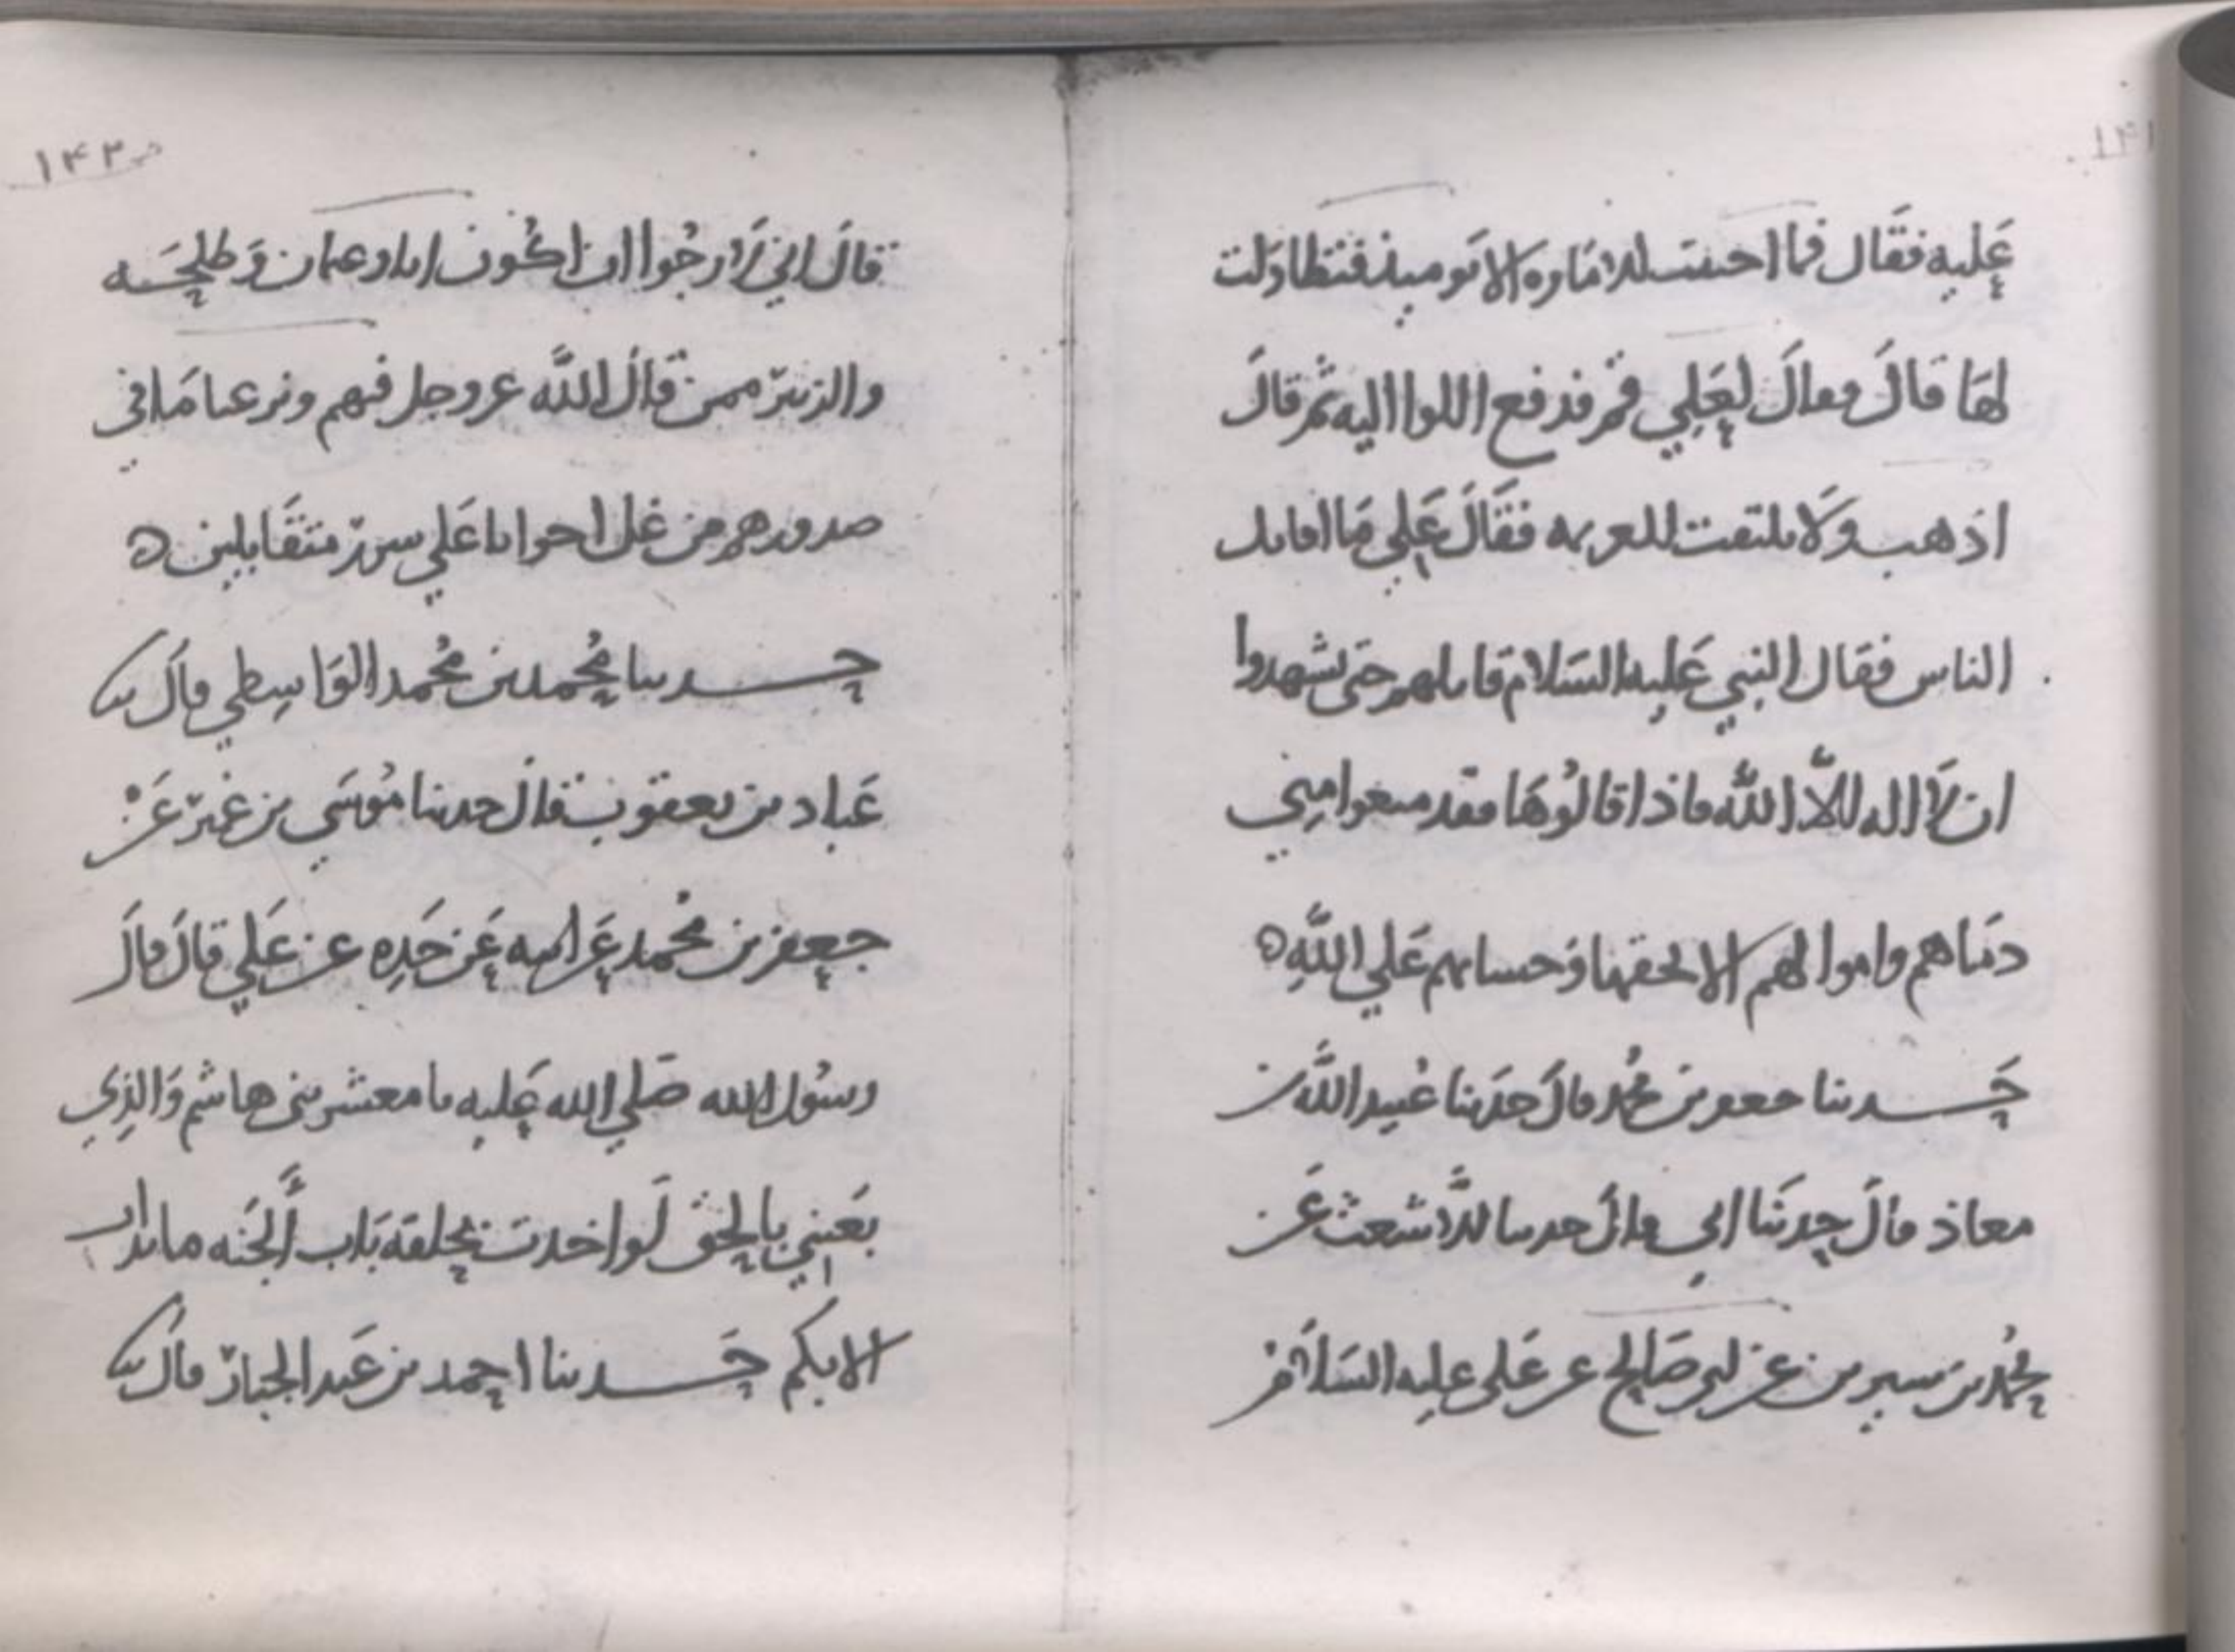 ١٤١
عليه فقال فما احببت الامارة الا يوميذ فتطاولت
لها قال وقال لعلي قم فدفع اللوا اليه ثم قال
اذهب ولا تلتفت للعزيمه فقال علي ما اقاتل
الناس فقال النبي عليه السلام قاتلهم حتى يشهدوا
ان لا اله الا الله فاذا قالوها فقد منعوا مني
دماهم واموالهم الا بحقها وحسابهم علي الله ه
حدثنا جعفر بن محمد قال حدثنا عبيد الله بن
معاذ قال حدثنا ابي قال حدثنا الاشعث عن
محمد بن سيرين عن ابي صالح عن علي عليه السلام
ص ١٤٢
قال اني لارجوا ان اكون انا وعثمان وطلحه
والزبير ممن قال الله عز وجل فيهم ونزعنا ما في
صدورهم من غل اخوانا علي سرر متقابلين ه
حدثنا محمد بن محمد الواسطي قال ثنا
عباد بن يعقوب قال حدثنا موسي بن عمير عن
جعفر بن محمد عن ابيه عن جده عن علي قال قال
رسول الله صلي الله عليه يا معشر بني هاشم والذي
بعثني بالحق لو اخذت بحلقة باب الجنه ما بدات
الا بكم حدثنا احمد بن عبد الجبار قال ثنا